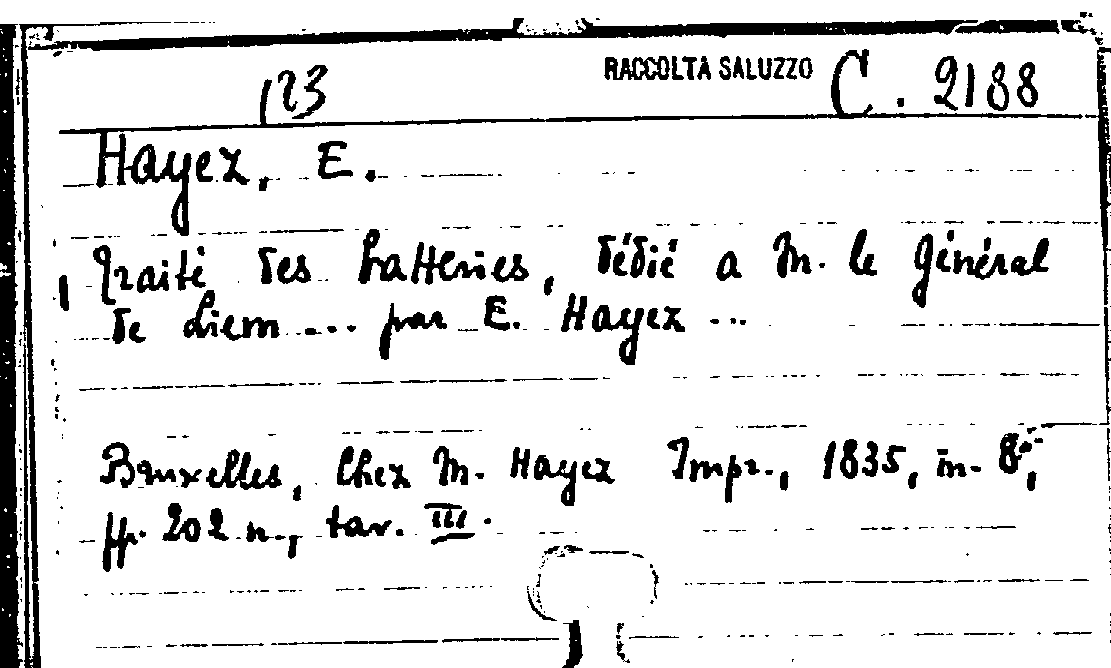 123 RACCOLTA SALUZZO C. 2188
Hayez, E.
Traité des batteries, dédié a M. le Général
de Liem ... par E. Hayez ...
Bruxelles, Chez M. Hayez Impr., 1835, in-8°,
pp. 202 n., tav. III.